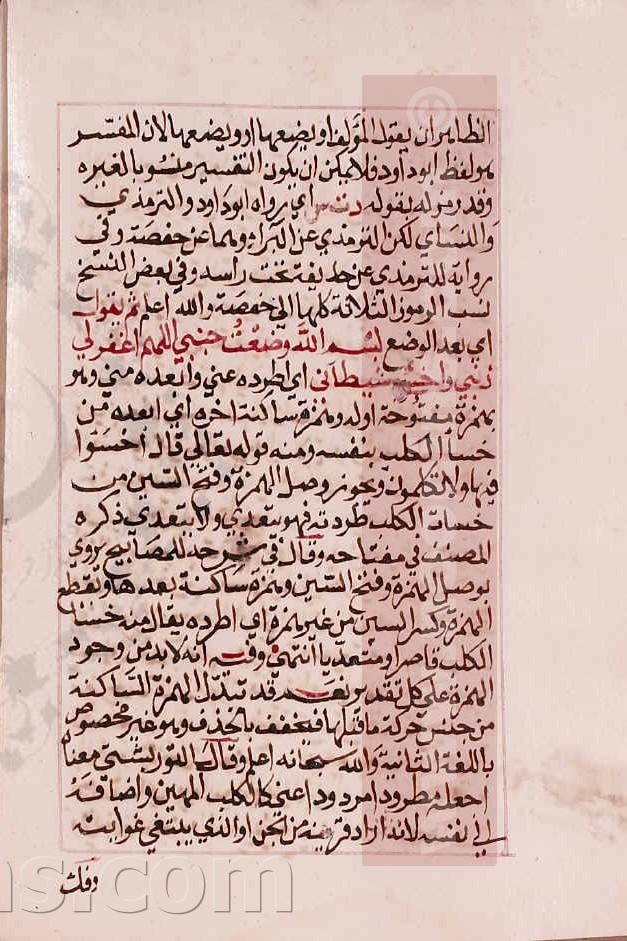 الظاهر ان يقول المؤلف او يضعها او ويضعها لان المفسر
هو لفظ ابو داود فلا يمكن ان يكون التفسير منسوبا لغيره
وقد رمز له بقوله دت س اي رواه ابو داود والترمذي
والنساي لكن الترمذي عن البراء وهما عن حفصة وفي
رواية للترمذي عن حذيفة تحت راسه وفي بعض النسخ
نسب الرموز الثلاثة كلها الى حفصة والله اعلم ثم يقول
اي بعد الوضع بسم الله وضعت جنبي اللهم اغفر لي
ذنبي واخسا شيطاني اي اطرده عني وابعده مني وهو
بهمزة مفتوحة اوله وهمزة ساكنة اخره اي ابعده من
خسأ الكلب بنفسه ومنه قوله تعالى قال اخسئوا
فيها ولا تكلمون ويجوز وصل الهمزة وفتح السين من
خسات الكلب طردته فهو يتعدي ولا يتعدي ذكره
المصنف في مفتاحه وقال في شرحه للمصابيح يروي
بوصل الهمزة وفتح السين وهمزة ساكنة بعدها وبقطع
الهمزة وكسر السين من غير همزة اي اطرده يقال منه خسا
الكلب قاصرا ومتعديا انتهى وفيه انه لا بد من وجود
الهمزة على كل تقدير نعم قد تبدل الهمزة الساكنة
من جنس حركة ما قبلها فتخفف بالحذف وهو غير مخصوص
باللغة الثانية والله سبحانه اعلم وقال التوربشتي معناه
اجعله مطرودا مردودا عني كالكلب المهين واضافه
الي نفسه لانه اراد قرينه من الجن او الذي يبتغي غوايته
وفك
ns.com